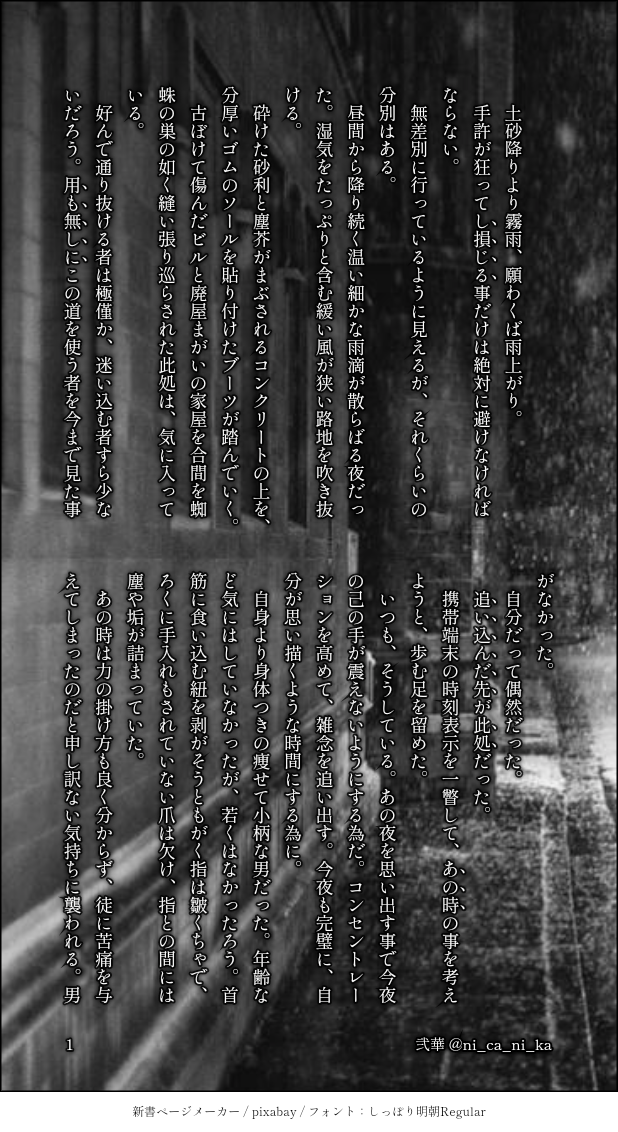 土砂降りより霧雨、願わくば雨上がり。
手許が狂ってし損じる事だけは絶対に避けなければ
ならない。
無差別に行っているように見えるが、それくらいの
分別はある。
昼間から降り続く温い細かな雨滴が散らばる夜だっ
た。湿気をたっぷりと含む緩い風が狭い路地を吹き抜
ける。
砕けた砂利と塵芥がまぶされるコンクリートの上を、
分厚いゴムのソールを貼り付けたブーツが踏んでいく。
古ぼけて傷んだビルと廃屋まがいの家屋を合間を蜘
蛛の巣の如く縫い張り巡らされた此処は、気に入って
いる。
好んで通り抜ける者は極僅か、迷い込む者すら少な
いだろう。用も無しにこの道を使う者を今まで見た事
がなかった。
自分だって偶然だった。
追い込んだ先が此処だった。
携帯端末の時刻表示を一瞥して、あの時の事を考え
ようと、歩む足を留めた。
いつも、そうしている。あの夜を思い出す事で今夜
の己の手が震えないようにする為だ。コンセントレー
ションを高めて、雑念を追い出す。今夜も完璧に、自
分が思い描くような時間にする為に。
自身より身体つきの痩せて小柄な男だった。年齢な
ど気にはしていなかったが、若くはなかったろう。首
筋に食い込む紐を剥がそうともがく指は皺くちゃで、
ろくに手入れもされていない爪は欠け、指との間には
塵や垢が詰まっていた。
あの時は力の掛け方も良く分からず、徒に苦痛を与
えてしまったのだと申し訳ない気持ちに襲われる。男
1
弐華 @ni_ca_ni_ka
新書ページメーカー / pixabay / フォント：しっぽり明朝Regular